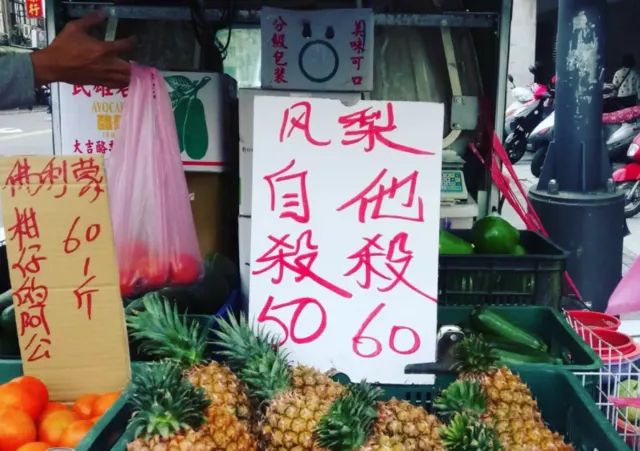 分級包裝
美味可口
民雄
AVOCADO
大吉酪
风梨
自殺
50
他殺
60
佛利蒙
柑仔的阿公
60 1斤